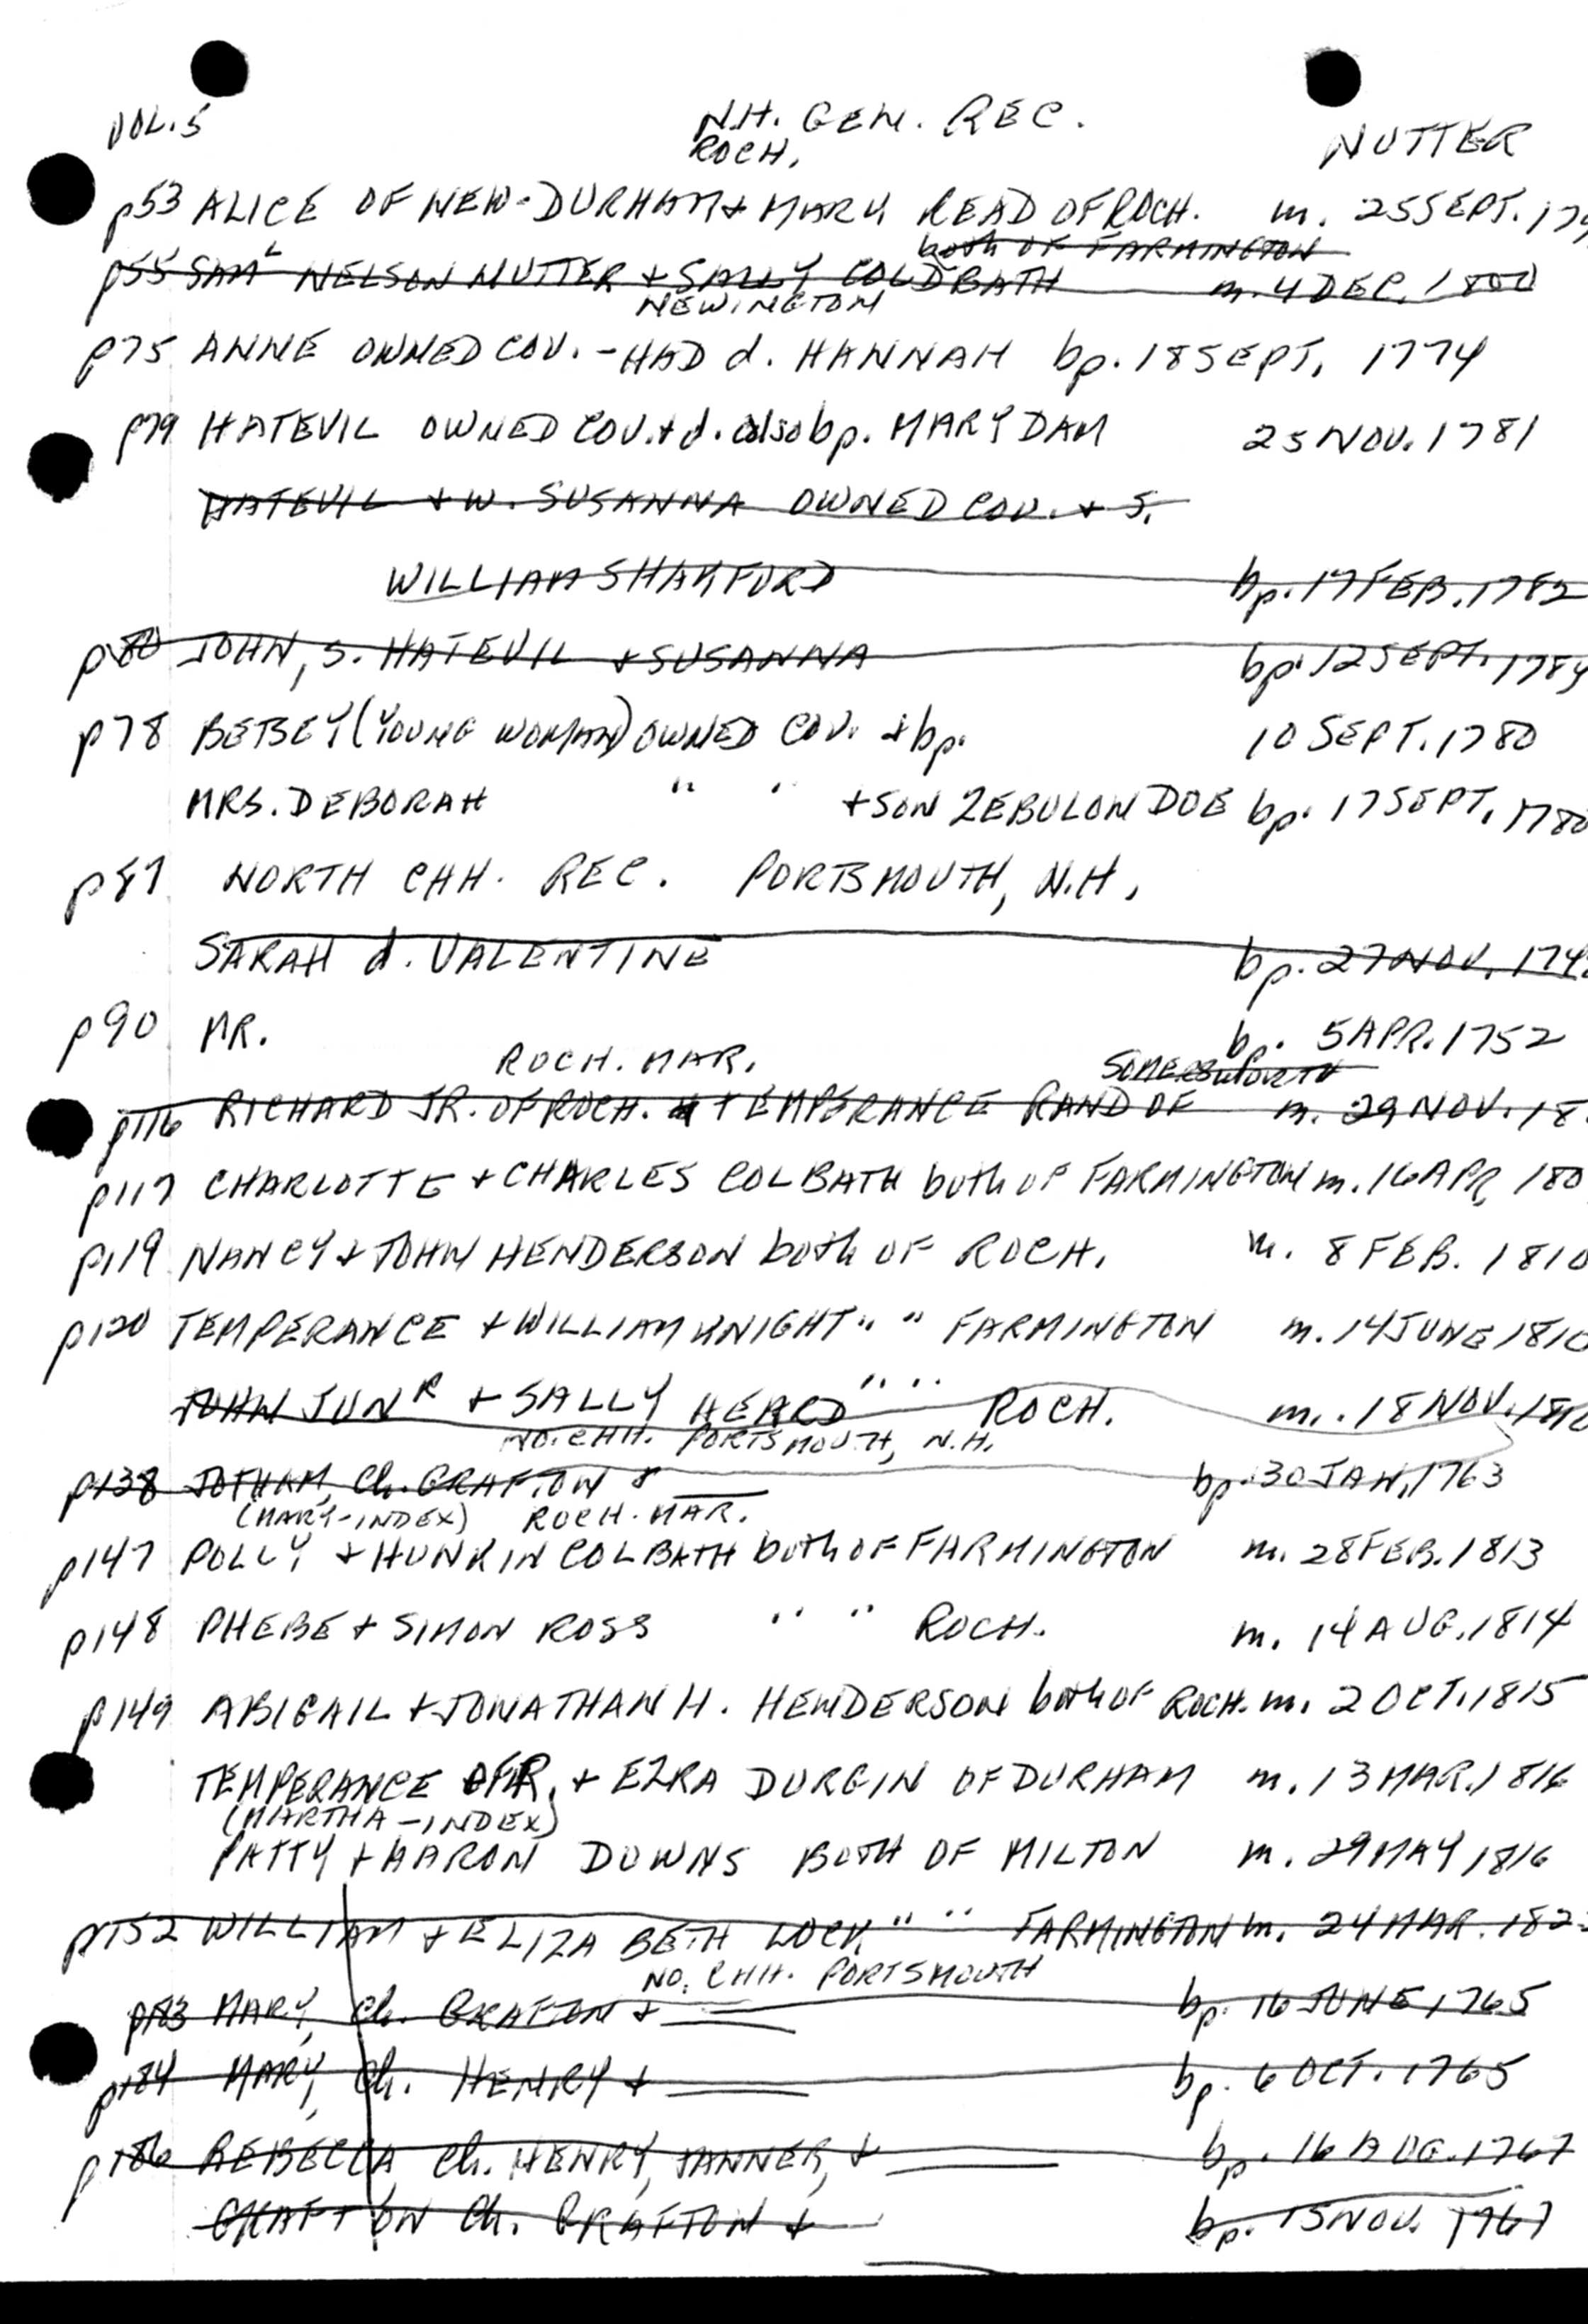 VOL.5 N.H. GEN. REC. NUTTER
ROCH.
p53 ALICE OF NEW-DURHAM + MARY READ OF ROCH. m. 25 SEPT. 179
both OF FARMINGTON
p55 SAM^L NELSON NUTTER + SALLY COLDBATH m. 4 DEC. 1800
NEWINGTON
p75 ANNE OWNED COV. - HAD d. HANNAH bp. 18 SEPT. 1774
p79 HATEVIL OWNED COV. + d. also bp. MARY DAM 25 NOV. 1781
HATEVIL + W. SUSANNA OWNED COV. + S.
WILLIAM SHAKFORD bp. 17 FEB. 1782
p80 JOHN, S. HATEVIL + SUSANNA bp. 12 SEPT. 1784
p78 BETSEY (YOUNG WOMAN) OWNED COV. + bp. 10 SEPT. 1780
MRS. DEBORAH " " + SON ZEBULON DOE bp. 17 SEPT. 1780
p87 NORTH CHH. REC. PORTSMOUTH, N.H.
SARAH d. VALENTINE bp. 27 NOV. 174
p90 MR. b. 5 APR. 1752
ROCH. MAR. SOMERSWORTH
p116 RICHARD JR. OF ROCH. + TEMPERANCE RAND OF m. 29 NOV. 18
p117 CHARLOTTE + CHARLES COLBATH both OF FARMINGTON m. 16 APR. 180
p119 NANCY + JOHN HENDERSON both OF ROCH. m. 8 FEB. 1810
p120 TEMPERANCE + WILLIAM KNIGHT " " FARMINGTON m. 14 JUNE 1810
JOHN JUN^R + SALLY HEARD " " ROCH. m. 18 NOV. 1810
NO. CHH. PORTSMOUTH, N.H.
p138 JOTHAM, Ch. GRAFTON + bp. 30 JAN. 1763
(MARY-INDEX) ROCH. MAR.
p147 POLLY + HUNKIN COLBATH both OF FARMINGTON m. 28 FEB. 1813
p148 PHEBE + SIMON ROSS " " ROCH. m. 14 AUG. 1814
p149 ABIGAIL + JONATHAN H. HENDERSON both OF ROCH. m. 2 OCT. 1815
TEMPERANCE OF R. + EZRA DURGIN OF DURHAM m. 13 MAR. 1816
(MARTHA-INDEX)
PATTY + AARON DOWNS BOTH OF MILTON m. 29 MAY 1816
p152 WILLIAM + ELIZABETH LOCK " " FARMINGTON m. 24 MAR. 182
NO. CHH. PORTSMOUTH
p183 MARY, Ch. GRAFTON + bp. 16 JUNE 1765
p184 MARY, Ch. HENRY + bp. 6 OCT. 1765
p186 REBECCA Ch. HENRY, TANNER, + bp. 16 AUG. 1767
GRAFTON Ch. GRAFTON + bp. 15 NOV. 1767